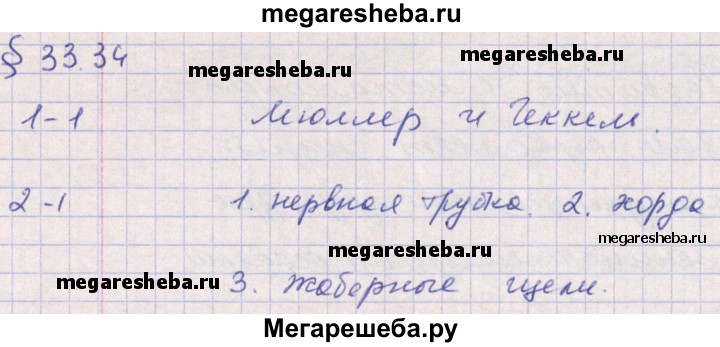 megaresheba.ru
§ 33.34
megaresheba.ru
megaresheba.ru
1-1 Мюллер и Геккель.
2-1 1. нервная трубка. 2. хорда
megaresheba.ru
megaresheba.ru
megaresheba.ru
3. жаберные щели.
Мегарешеба.ру